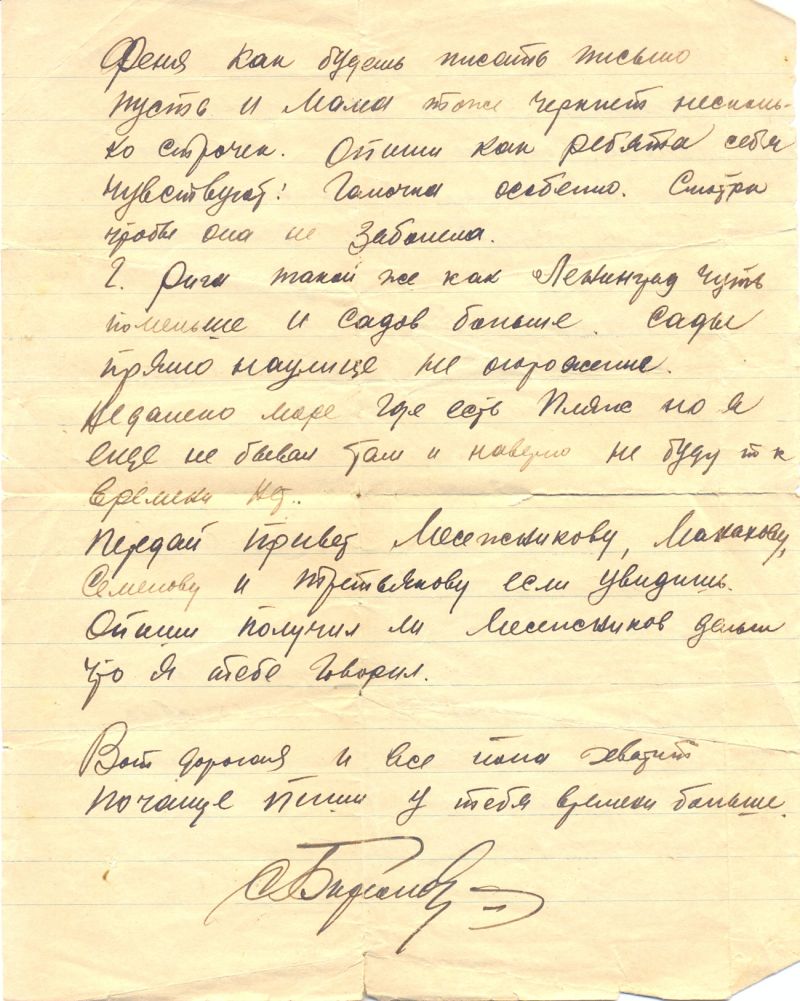 Феня как будешь писать письмо
пусть и Мама тоже черкнет несколь-
ко строчек. Опиши как ребята себя
чувствуют! Галочка особенно. Смотри
чтобы она не заболела.
Г. Рига такой же как Ленинград чуть
поменьше и садов больше. сады
прямо наулице не огорожение.
Недалеко море где есть Пляж но я
еще не бывал там и наверно не буду т к
времени нет.
Передай привет Месежникову, Манахову,
Семенову и Третьякову если увидишь.
Опиши получил ли Месежников деньги
что я тебе говорил.
Вот дорогая и все пока хватит
почаще пиши у тебя времени больше.